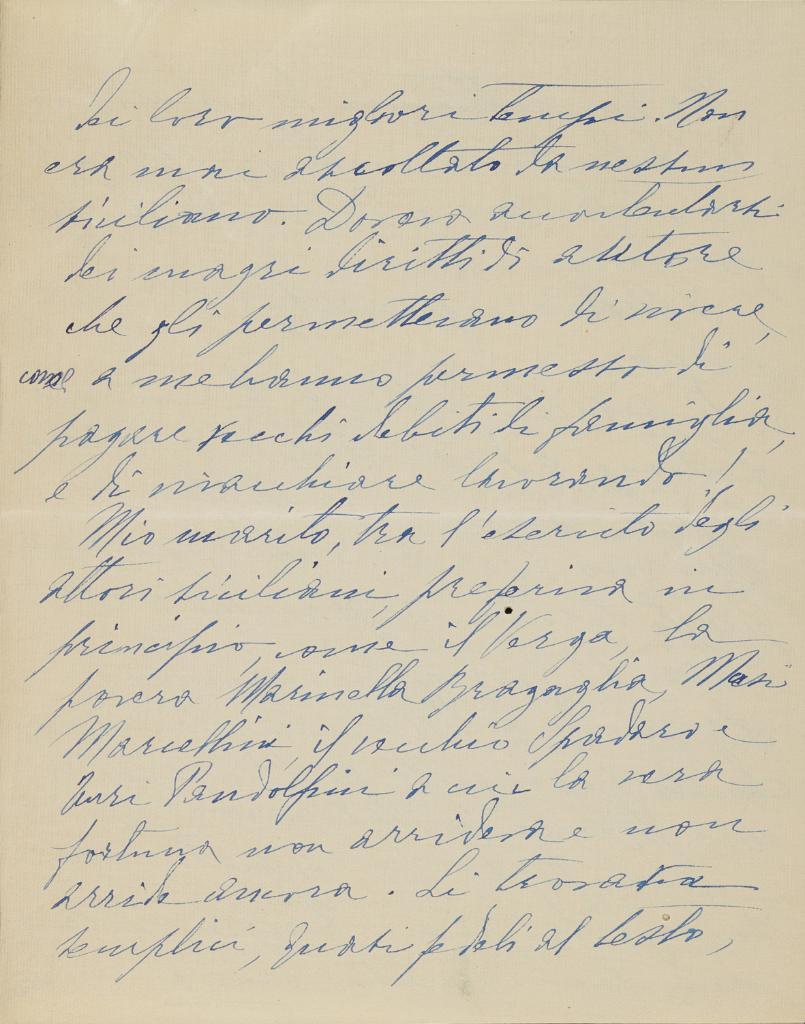 dei loro migliori tempi. Non
era mai ascoltato da nessun
siciliano. Doveva accontentarsi
dei magri diritti di autore
che gli permettevano di vivere,
come a me hanno permesso di
pagare vecchi debiti di famiglia,
e di vivacchiare lavorando!
Mio marito, tra l'esercito degli
attori siciliani, preferiva in
principio, come il Verga, la
povera Marinella Bragaglia, Masi
Marcellini, il vecchio Spadaro e
Turi Pandolfini a cui la vera
fortuna non arrideva e non
arride ancora. Li trovava
semplici, quasi fedeli al testo,